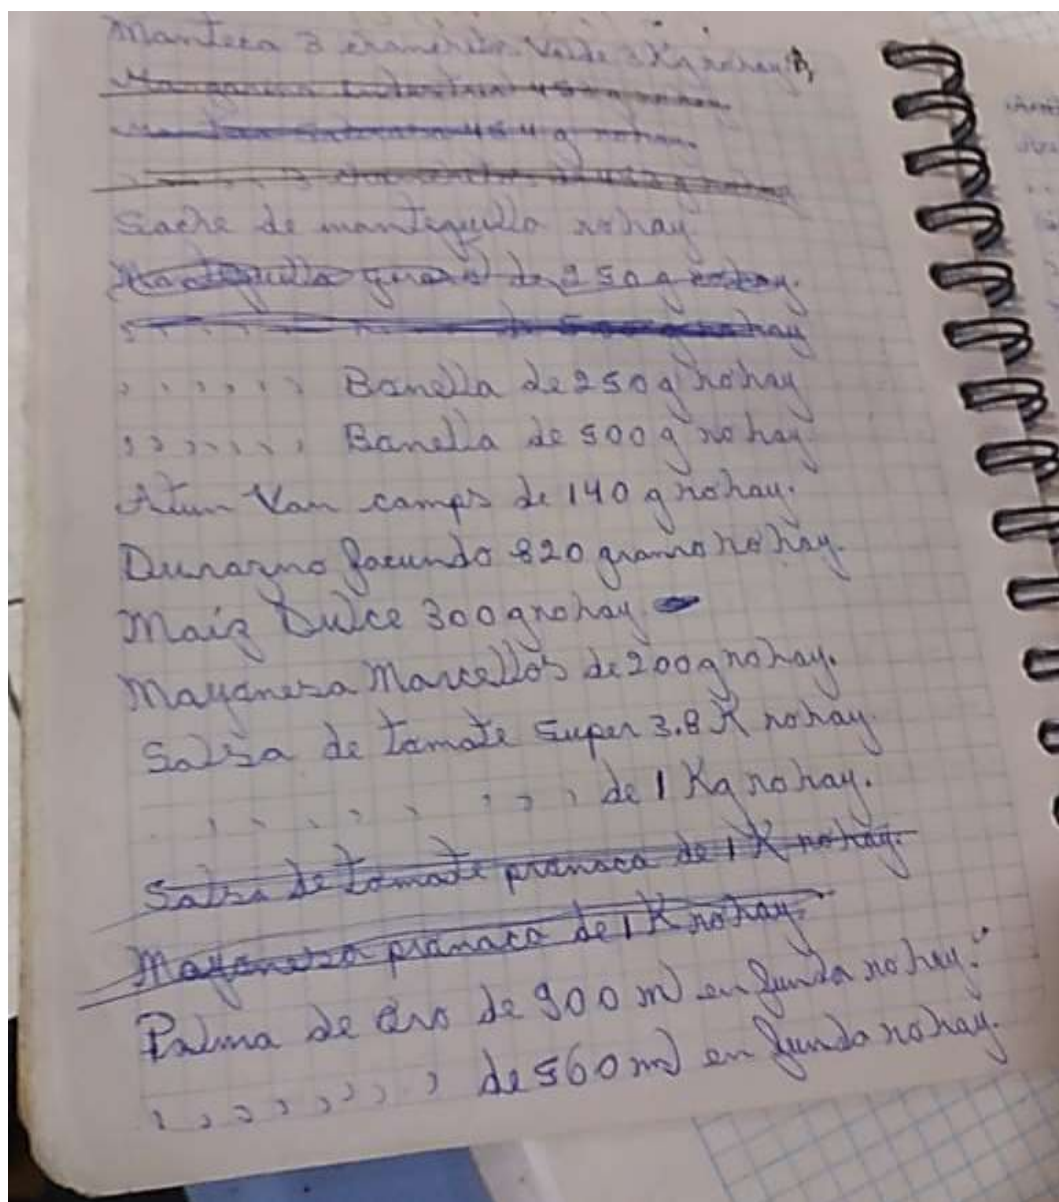 Manteca 3 chanchitos Valde 3 Kg no hay
Margarina 454 g no hay
454 g no hay.
, , , , 3 chanchitos de g no hay
Sache de mantequilla no hay
Mantequilla girasol de 250 g no hay.
, , , , de 500 g no hay
, , , , , , Banella de 250 g no hay
, , , , , , , Banella de 500 g no hay
Atun Van camps de 140 g no hay.
Durazno facundo 820 gramo no hay.
Maiz Dulce 300 g no hay
Mayonesa Marcellos de 200 g no hay.
Salsa de tomate Super 3.8 K no hay.
, , , , , , , , de 1 Kg no hay.
Salsa de tomate pronaca de 1 K no hay.
Mayonesa pronaca de 1 K no hay.
Palma de Oro de 900 ml en funda no hay.
, , , , , , , , de 560 ml en funda no hay.